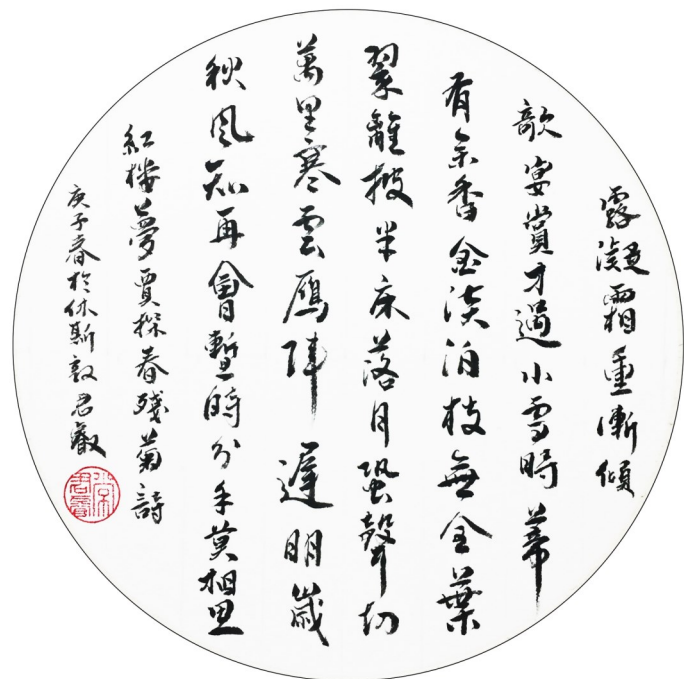 露凝霜重漸傾
欹宴賞才過小雪時蒂
有余香金淡泊枝無全葉
翠離披半床落月蛩聲切
萬里寒雲鴈陣遲明歲
秋風知再會暫時分手莫相思
紅樓夢賈探春殘菊詩
庚子春於休斯敦君叡